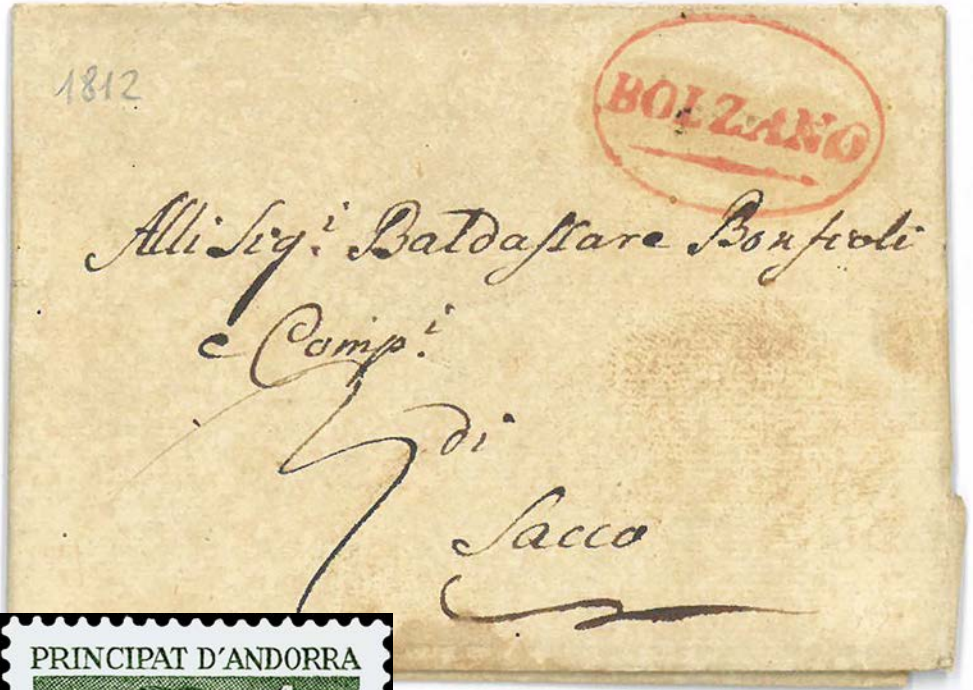 1812
BOLZANO
Alli Sig.i Baldassare Bonfioli
e Comp.i
di
Sacco
PRINCIPAT D'ANDORRA